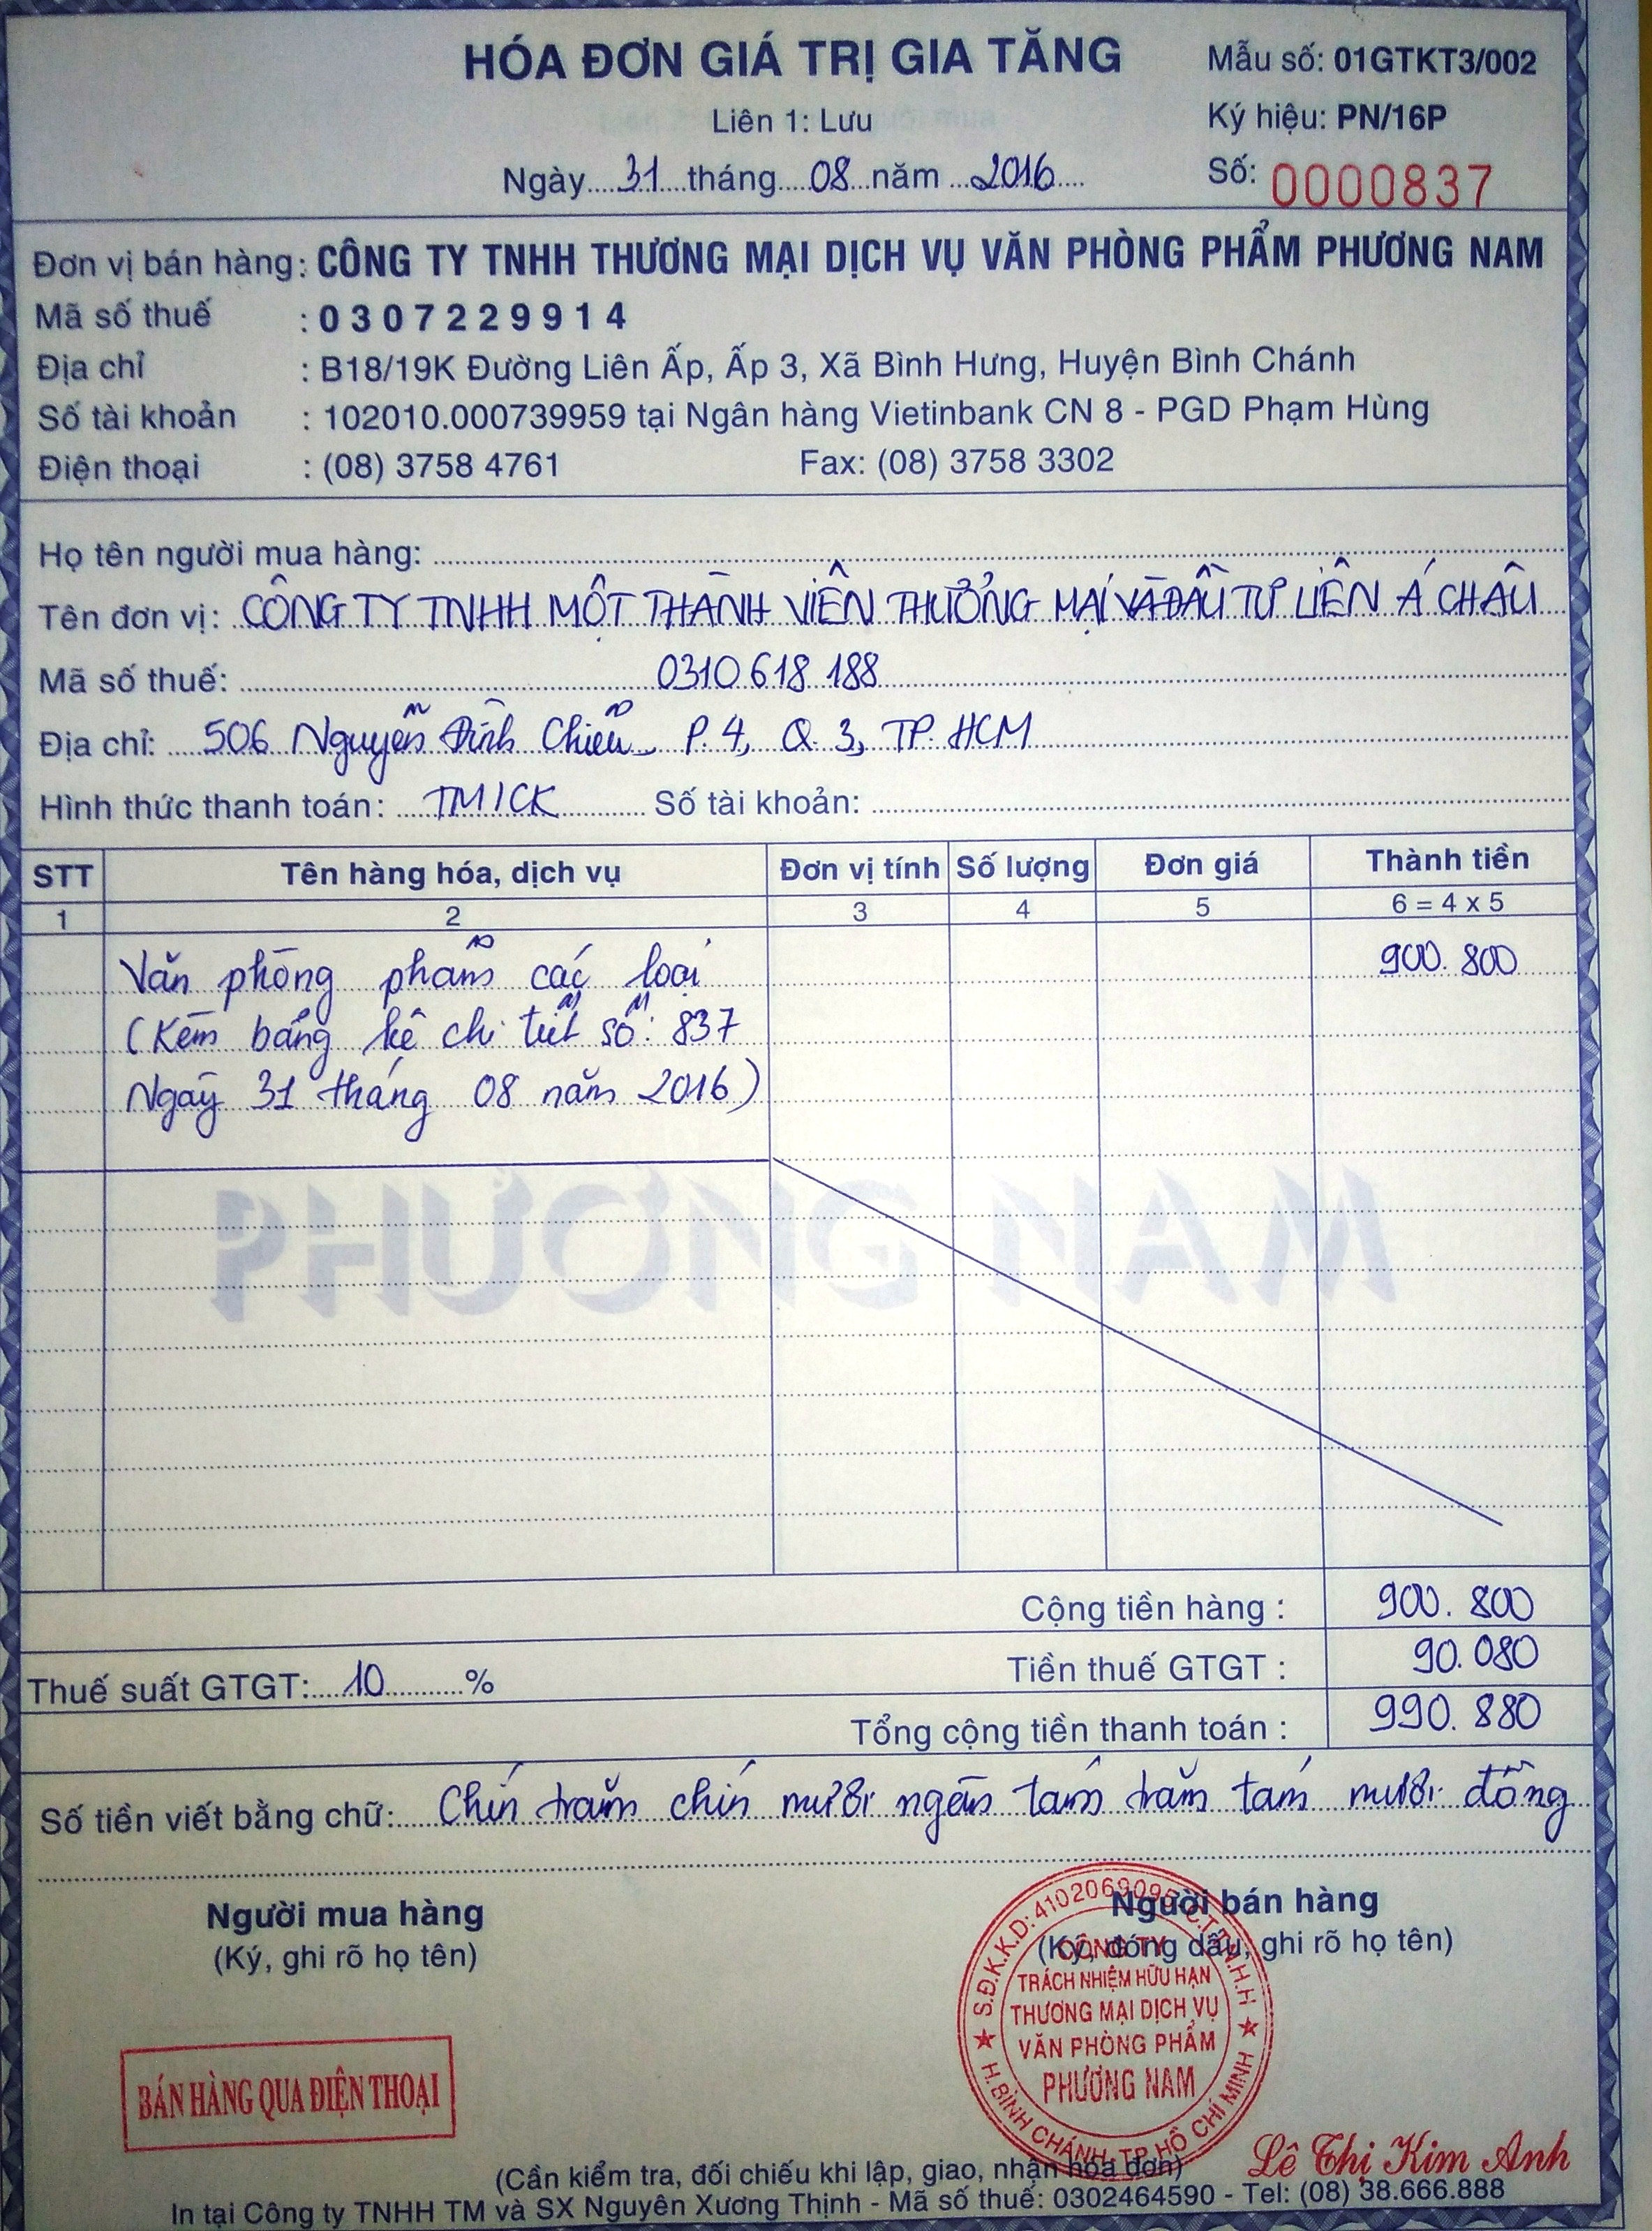 HÓA ĐƠN GIÁ TRỊ GIA TĂNG
Mẫu số: 01GTKT3/002
Liên 1: Lưu
Ký hiệu: PN/16P
Ngày 31 tháng 08 năm 2016
Số: 0000837
Đơn vị bán hàng: CÔNG TY TNHH THƯƠNG MẠI DỊCH VỤ VĂN PHÒNG PHẨM PHƯƠNG NAM
Mã số thuế : 0307229914
Địa chỉ : B18/19K Đường Liên Ấp, Ấp 3, Xã Bình Hưng, Huyện Bình Chánh
Số tài khoản : 102010.000739959 tại Ngân hàng Vietinbank CN 8 - PGD Phạm Hùng
Điện thoại : (08) 3758 4761 Fax: (08) 3758 3302
Họ tên người mua hàng:
Tên đơn vị: CÔNG TY TNHH MỘT THÀNH VIÊN THƯƠNG MẠI VÀ ĐẦU TƯ LIÊN Á CHÂU
Mã số thuế: 0310 618 188
Địa chỉ: 506 Nguyễn Đình Chiểu, P. 4, Q. 3, TP. HCM
Hình thức thanh toán: TM/CK Số tài khoản:
STT Tên hàng hóa, dịch vụ Đơn vị tính Số lượng Đơn giá Thành tiền
1 2 3 4 5 6 = 4 x 5
Văn phòng phẩm các loại 900.800
(Kèm bảng kê chi tiết số: 837
Ngày 31 tháng 08 năm 2016)
PHƯƠNG NAM
Cộng tiền hàng : 900.800
Thuế suất GTGT: 10 % Tiền thuế GTGT : 90.080
Tổng cộng tiền thanh toán : 990.880
Số tiền viết bằng chữ: Chín trăm chín mươi ngàn tám trăm tám mươi đồng
Người mua hàng
(Ký, ghi rõ họ tên)
Người bán hàng
(Ký, đóng dấu, ghi rõ họ tên)
S.Đ.K.K.D: C.T.T.N.H.H
CÔNG TY
TRÁCH NHIỆM HỮU HẠN
THƯƠNG MẠI DỊCH VỤ
VĂN PHÒNG PHẨM
PHƯƠNG NAM
H.BÌNH CHÁNH-TP.HỒ CHÍ MINH
BÁN HÀNG QUA ĐIỆN THOẠI
Lê Thị Kim Anh
(Cần kiểm tra, đối chiếu khi lập, giao, nhận hóa đơn)
In tại Công ty TNHH TM và SX Nguyên Xương Thịnh - Mã số thuế: 0302464590 - Tel: (08) 38.666.888